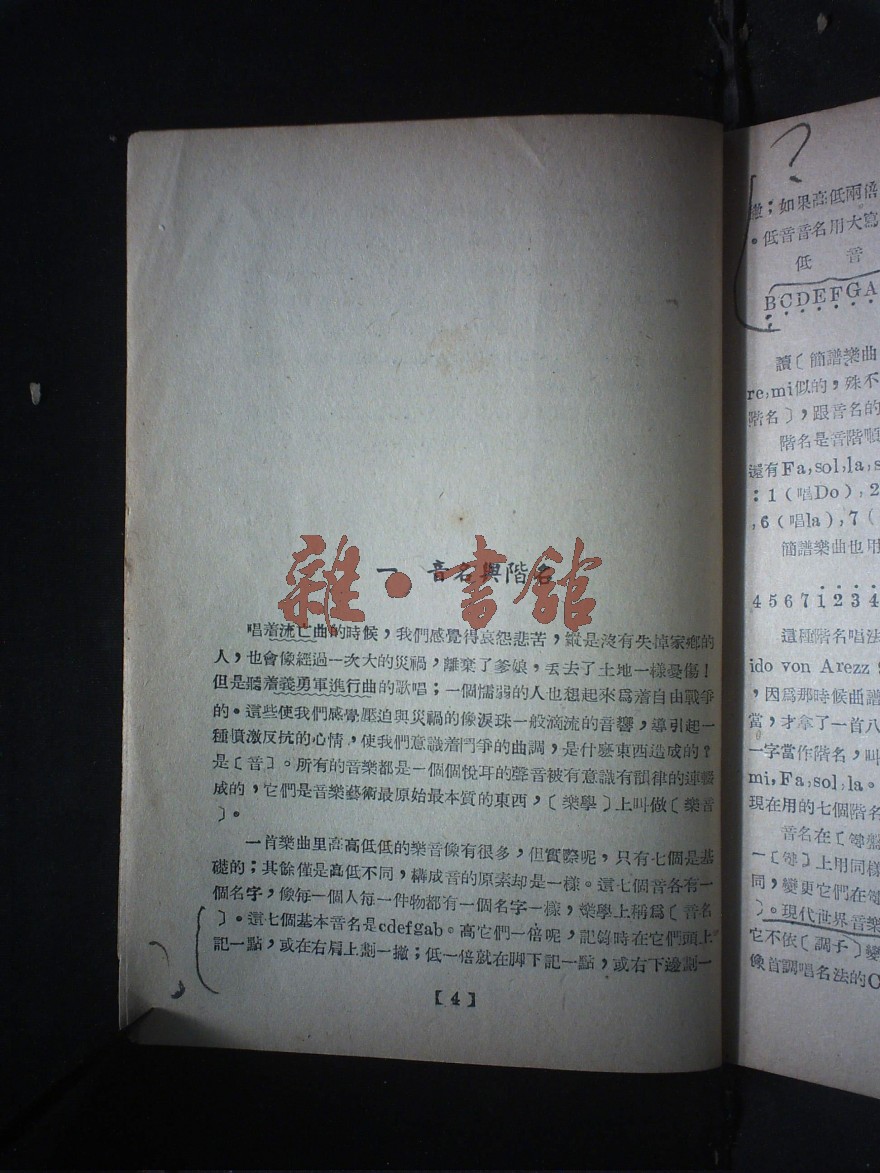 雜·書館
一 音名與階名
唱着流亡曲的時候，我們感覺得哀怨悲苦，縱是沒有失掉家鄉的
人，也會像經過一次大的災禍，離棄了爹娘，丟去了土地一樣憂傷！
但是聽着義勇軍進行曲的歌唱；一個懦弱的人也想起來爲着自由戰爭
的。這些使我們感覺壓迫與災禍的像淚珠一般滴流的音響，導引起一
種憤激反抗的心情，使我們意識着鬥爭的曲調，是什麼東西造成的？
是〔音〕。所有的音樂都是一個個悅耳的聲音被有意識有韻律的連綴
成的，它們是音樂藝術最原始最本質的東西，〔樂學〕上叫做〔樂音
〕。
一首樂曲里高高低低的樂音像有很多，但實際呢，只有七個是基
礎的；其餘僅是高低不同，構成音的原素却是一樣。這七個音各有一
個名字，像每一個人每一件物都有一個名字一樣，樂學上稱爲〔音名
〕。這七個基本音名是cdefgab。高它們一倍呢，記錄時在它們頭上
記一點，或在右肩上劃一撇；低一倍就在脚下記一點，或右下邊劃一
【4】
?
撇；如果高低兩倍
。低音音名用大寫
低 音
BCDEFGA
讀〔簡譜樂曲
re,mi似的，殊不
階名〕，跟音名的
階名是音階順
還有Fa,sol,la,s
：1（唱Do），2
,6（唱la），7（
簡譜樂曲也用
4 5 6 7 1 2 3 4
這種階名唱法
ido von Arezz
，因爲那時候曲譜
當，才拿了一首八
一字當作階名，叫
mi,Fa,sol,la。
現在用的七個階名
音名在〔鍵盤
一〔鍵〕上用同樣
同，變更它們在鍵
〕。現代世界音樂
它不依〔調子〕變
像首調唱名法的C